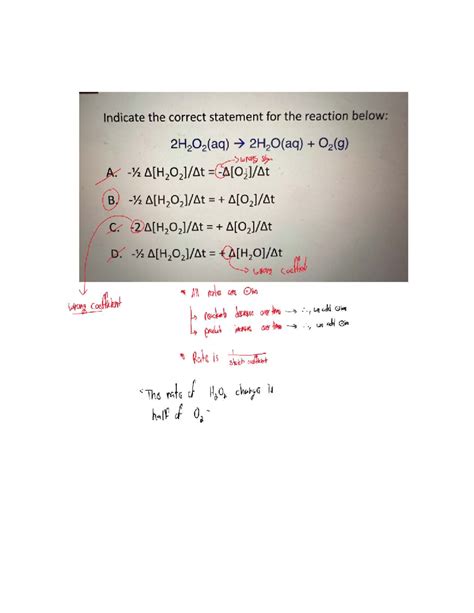 Indicate the correct statement for the reaction below:
2H₂O₂(aq) → 2H₂O(aq) + O₂(g)
→ wrong sign
A. -½ Δ[H₂O₂]/Δt = -Δ[O₂]/Δt
B. -½ Δ[H₂O₂]/Δt = + Δ[O₂]/Δt
C. -2 Δ[H₂O₂]/Δt = + Δ[O₂]/Δt
D. -½ Δ[H₂O₂]/Δt = + Δ[H₂O]/Δt
→ wrong coefficient
wrong coefficient
* All rates are ⊕
↳ reactants decrease over time → ∴, we add ⊖
↳ product increase over time → ∴, we add ⊕
* Rate is 1/stoich coefficient
"The rate of H₂O₂ change is
half of O₂"